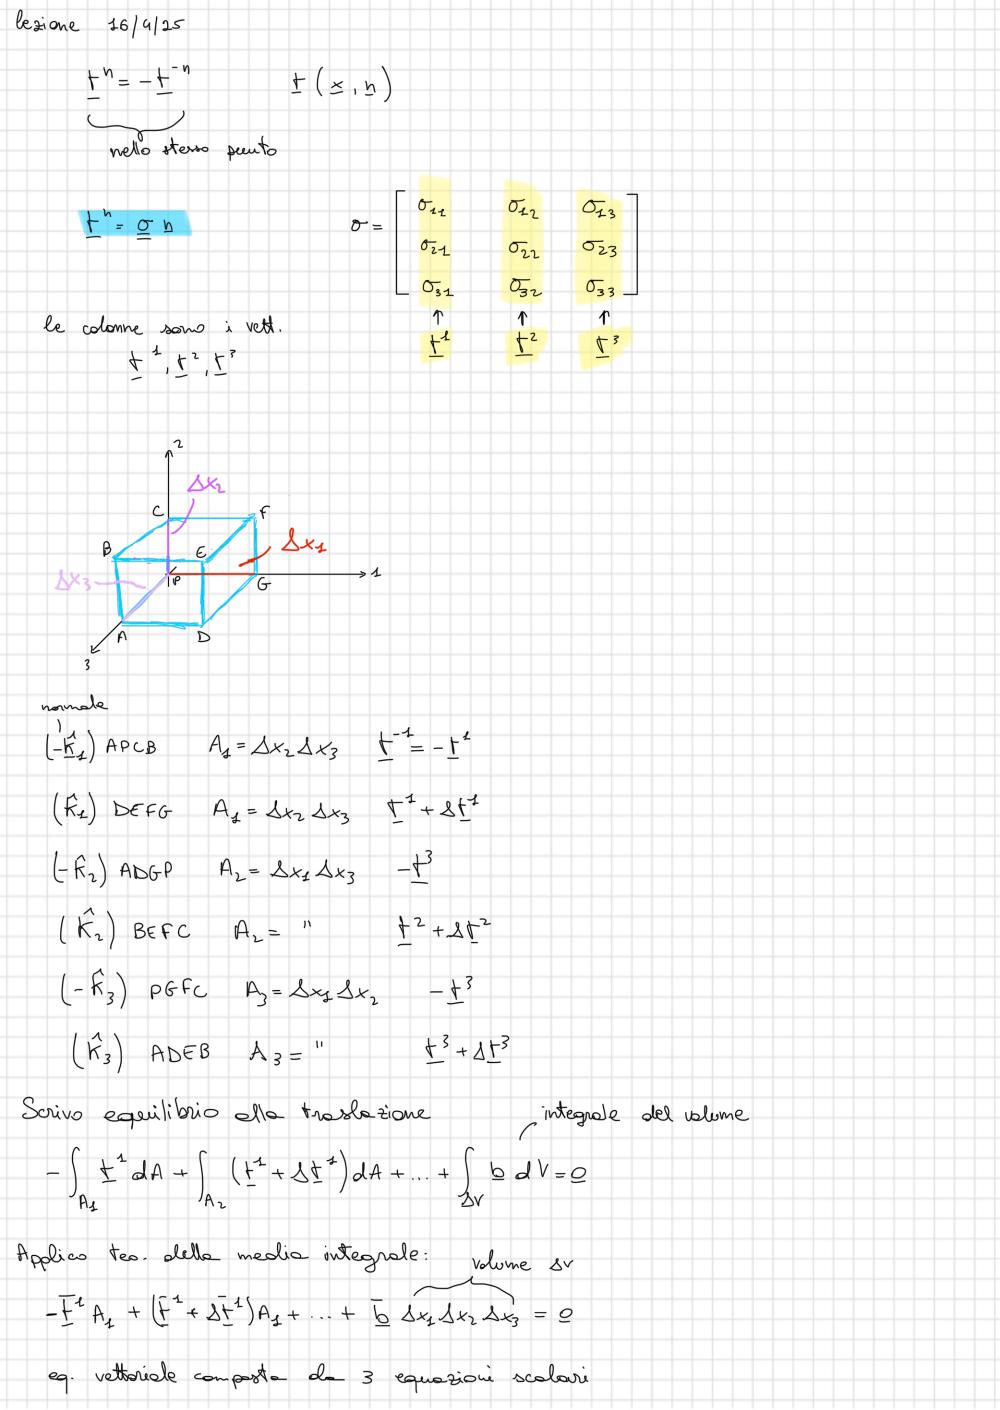 lezione 16/4/25
t^n = - t^-n   t (x, n)
nello stesso punto
t^n = σ n   σ = [ σ11 σ12 σ13
σ21 σ22 σ23
σ31 σ32 σ33 ]
↑ ↑ ↑
t^1 t^2 t^3
le colonne sono i vett.
t^1, t^2, t^3
2
Δx2
C F
B E Δx1
Δx3 P G 1
A D
3
normale
(-k̂1) APCB   A1 = Δx2 Δx3   t^-1 = - t^1
(k̂1) DEFG   A1 = Δx2 Δx3   t^1 + Δt^1
(-k̂2) ADGP   A2 = Δx1 Δx3   - t^3
(k̂2) BEFC   A2 = "   t^2 + Δt^2
(-k̂3) PGFC   A3 = Δx1 Δx2   - t^3
(k̂3) ADEB   A3 = "   t^3 + Δt^3
Scrivo equilibrio alla traslazione   integrale del volume
- ∫A1 t^1 dA + ∫A2 (t^1 + Δt^1) dA + ... + ∫ΔV b dV = 0
Applico teo. della media integrale:   volume ΔV
- t̄^1 A1 + (t̄^1 + Δt̄^1) A1 + ... + b̄ Δx1 Δx2 Δx3 = 0
eq. vettoriale composta da 3 equazioni scalari